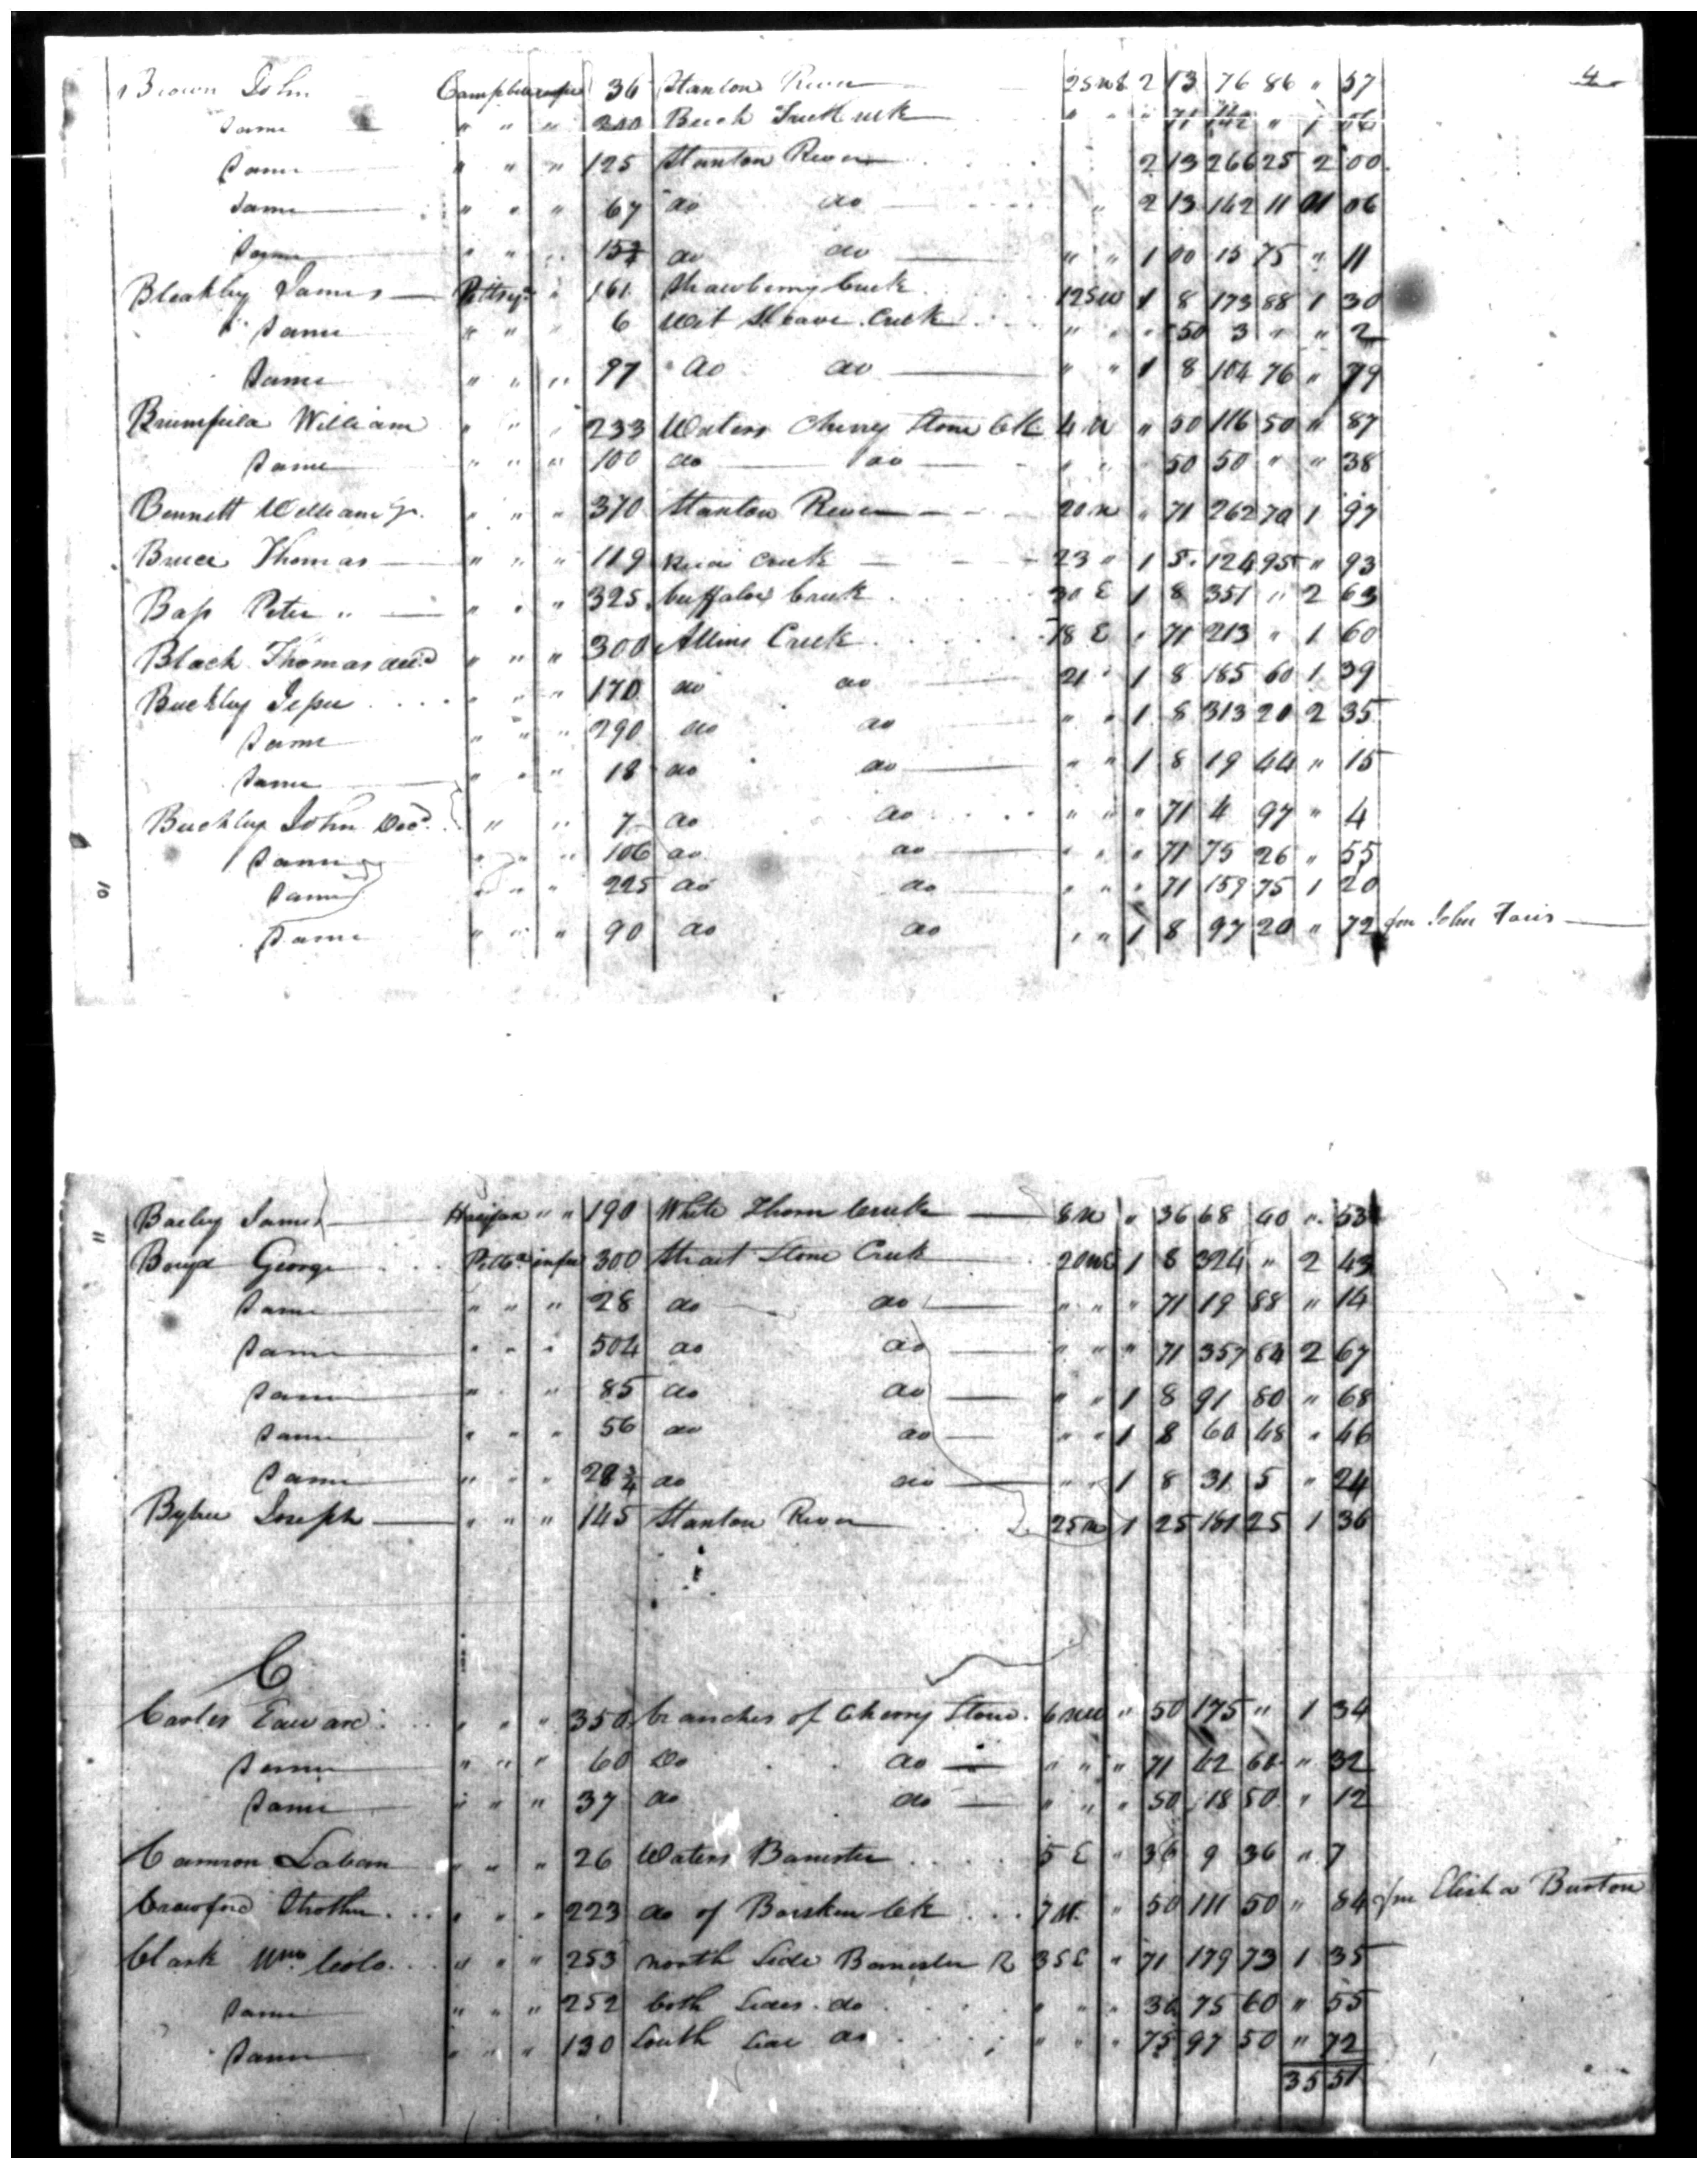 4
Brown John Campbell in fee 36 Stanton River 25 NE 2 13 76 86 " 57
Same " " " 200 Beech Tree Creek " " " 71 142 " 1 06
Same " " " 125 Stanton River 2 13 266 25 2 00
Same " " " 67 do do " 2 13 142 11 01 06
Same " " " 15¾ do do " " 1 00 15 75 " 11
Bleakley James Pittsyl " 161 Strawberry Creek 12 SW 1 8 173 88 1 30
Same " " " 6 Wet Sleave Creek " " " 50 3 " " 2
Same " " " 97 do do " " 1 8 104 76 " 79
Brumfield William " " " 233 Waters Cherry Stone Ck 4 N " 50 116 50 " 87
Same " " " 100 do do " " " 50 50 " " 38
Bennett William Jr. " " " 370 Stanton River 20 N " 71 262 70 1 97
Bruce Thomas " " " 119 Creek 23 " 1 5 124 95 " 93
Bass Peter " " " " 325 buffaloe Creek 30 E 1 8 351 " 2 63
Black Thomas decd " " " 300 Allins Creek 18 E " 71 213 " 1 60
Buckley Jesse " " " 170 do do 21 " 1 8 185 60 1 39
Same " " " 290 do do " " 1 8 313 20 2 35
Same " " " 18 do do " " 1 8 19 44 " 15
Buckley John Decd. " " 7 do do " " " 71 4 97 " 4
Same " " " 106 do do " " " 71 75 26 " 55
Same " " " 225 do do " " " 71 159 75 1 20
Same " " " 90 do do " " 1 8 97 20 " 72 fm John Faris
10
11
Bailey James Halifax " " 190 White Thorn Creek 8 N " 36 68 40 " 53
Boyd George Pittsa in fee 300 Strait Stone Creek 20 NE 1 8 324 " 2 43
Same " " " 28 do do " " " 71 19 88 " 14
Same " " " 504 do do " " " 71 357 84 2 67
Same " " " 85 do do " " 1 8 91 80 " 68
Same " " " 56 do do " " 1 8 60 48 " 46
Same " " " 28¾ do do " " 1 8 31 5 " 24
Bybee Joseph " " " 145 Stanton River 25 N 1 25 181 25 1 36
C
Carter Edward " " " 350 branches of Cherry Stone 6 NW " 50 175 " 1 34
Same " " " 60 Do do " " " 71 42 60 " 32
Same " " " 37 do do " " " 50 18 50 " 12
Camron Laban " " " 26 Waters Banister 5 E " 36 9 36 " 7
Crawford Strother " " " 223 do of Bearskin Ck 7 W " 50 111 50 " 84 fm Elisha Burton
Clark Wm Colo. " " " 253 north Side Banister R 35 E " 71 179 73 1 35
Same " " " 252 both Sides do " " " 30 75 60 " 55
Same " " " 130 South Side do " " " 75 97 50 " 72
35 51